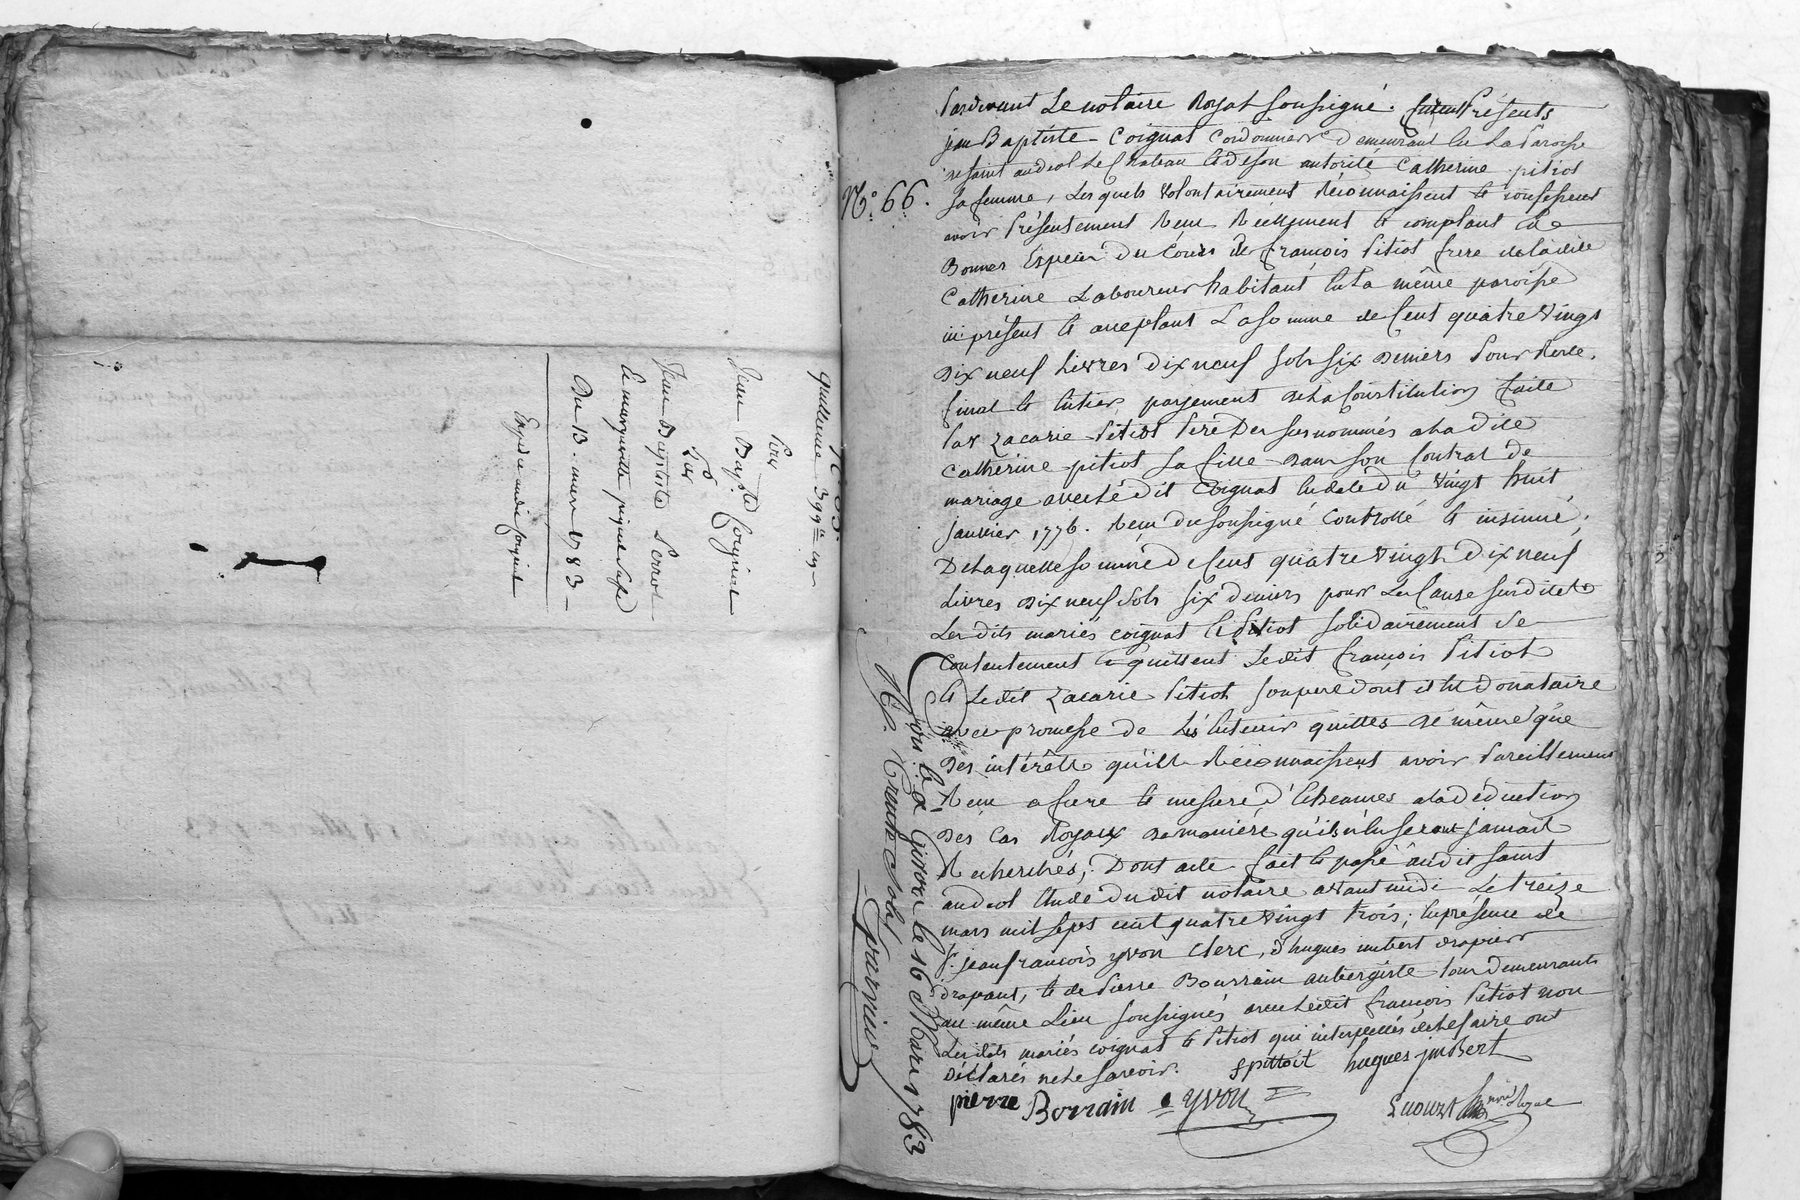 N.° 65
quittance 399# 19s
Pour
Jean Bap.te Coignat
Par
Jean Baptiste Perrot
Et marguerite
Du 13. mars 1783
Expédié audit Coignat
N.° 66.
Pardevant Le notaire Royal soussigné. furent Présents
jean Baptiste Coignat Cordonnier demeurant en La Paroisse
de saint andeol Le Chateau et de son autorité Catherine pitiot
sa femme, Lesquels volontairement Reconnaissent et confessent
avoir Présentement Reçu Réellement et comptant en
Bonnes Especes Du Cours de françois Pitiot frere de ladite
Catherine Laboureur habitant en La même paroisse
ici présent et acceptant La somme de Cent quatre vingt
Dix neuf Livres Dix neuf sols six Deniers Pour Reste
final et entier payement de La Constitution faite
Par Zacarie Pitiot Pere Des susnommés a La dite
Catherine pitiot sa fille Dans son Contrat de
mariage avec Ledit Coignat en date du vingt huit
janvier 1776. Reçu du soussigné Controllé et insinué,
De Laquelle somme de Cent quatre vingt dix neuf
Livres Dix neuf sols six deniers pour Les Cause susdites
Les dits mariés coignat et Pitiot solidairement se
contentement et quittent Ledit françois Pitiot
et Ledit Zacarie Pitiot son pere dont il est donataire
avec promesse de Les entenir quittes de même que
Des intérêts qu'ils Reconnaissent avoir Pareillement
Reçu a fure et mesure d'Echeances a La déduction
Des Cas Royaux de maniere qu'ils n'en seront jamais
Recherchés; Dont acte fait et passé audit saint
andeol Etude dudit notaire avant midi Le treize
mars mil sept cent quatre vingt trois; en présence de
s.r jean françois yvon Clerc, d'hugues imbert drapier
drapant, et de Pierre Bourrain aubergiste tous demeurants
au même Lieu soussignés avec Ledit françois Pitiot non
Lesdits mariés coignat et Pitiot qui interpellés de Le faire ont
Déclarés ne Le savoir. f pittiot hugues jmbert
pierre Borrain yvon not.e Royal
Con.lé à Givors le 16 Mars 1783
R. Trente sols